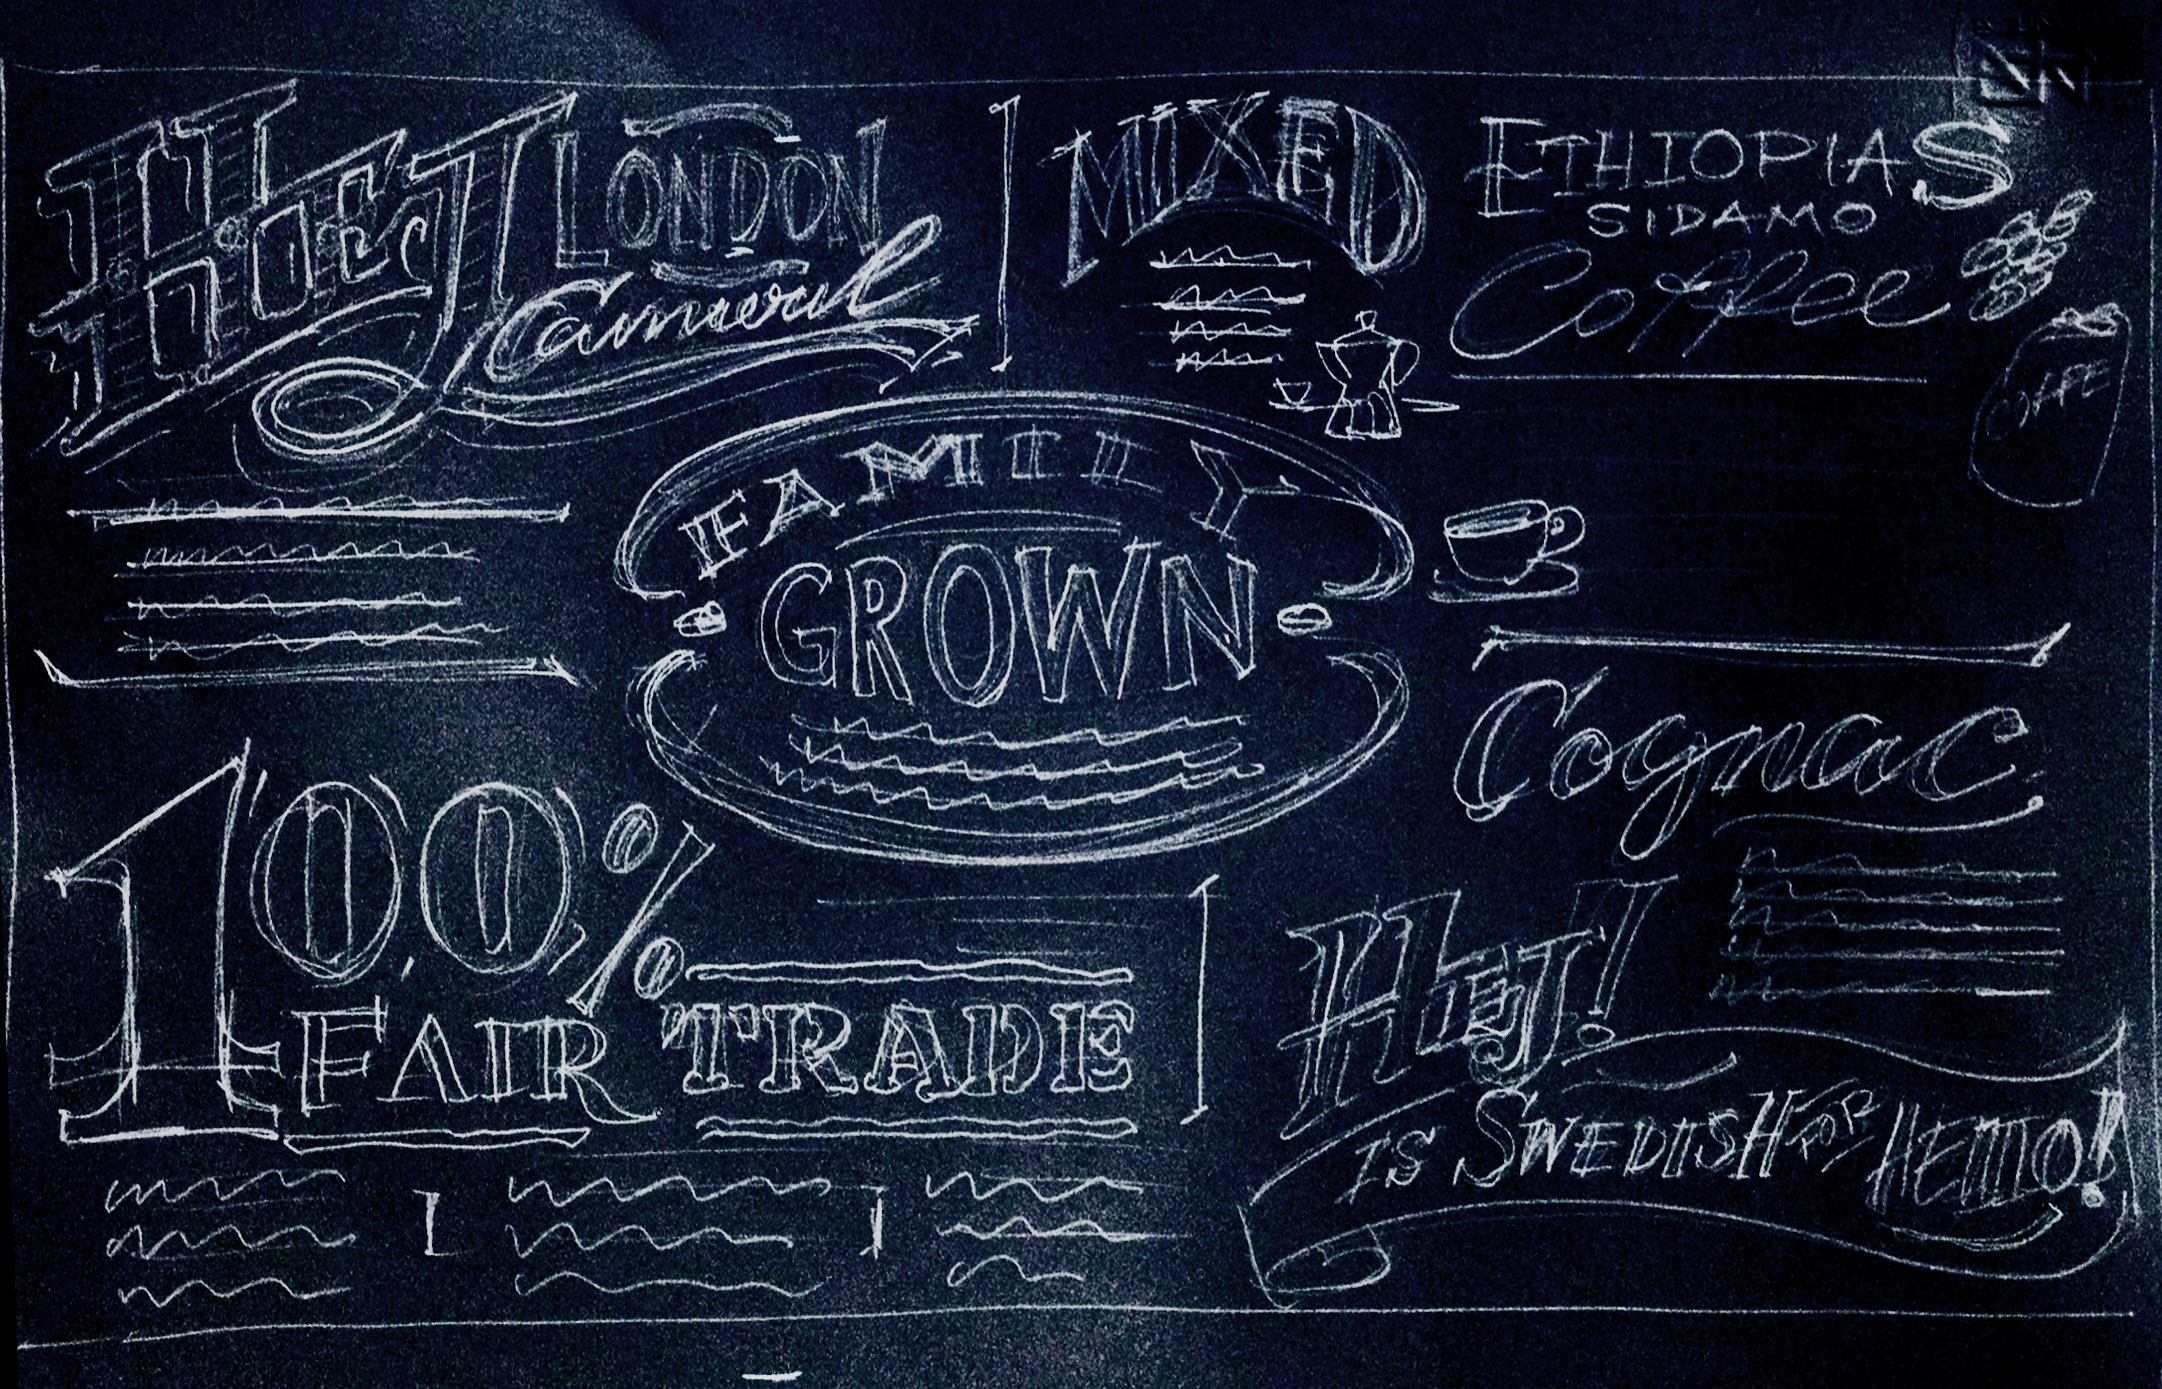 HOEJ
LONDON
MIXED
ETHIOPIAS
SIDAMO
Coffee
CAFE
FAMILY
GROWN
Cognac
100%
FAIR TRADE
HEJ!
IS SWEDISH FOR HELLO!